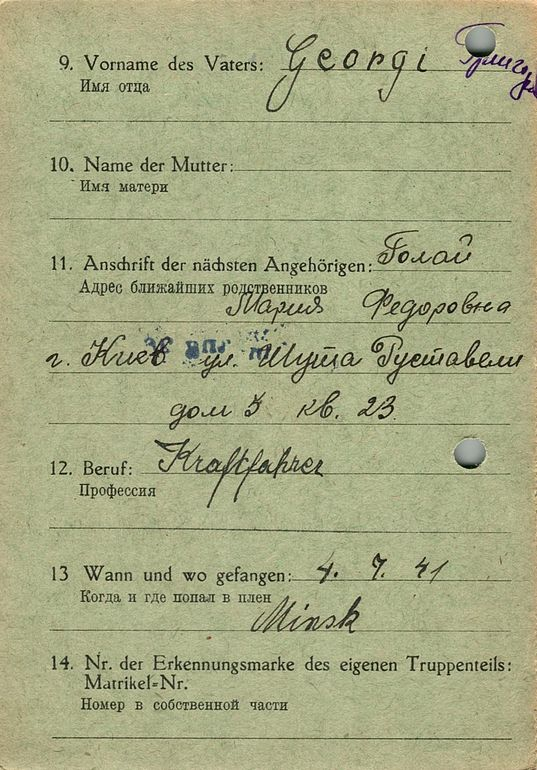 9. Vorname des Vaters: Georgi
Имя отца
10. Name der Mutter:
Имя матери
11. Anschrift der nächsten Angehörigen: Голай
Адрес ближайших родственников
Мария Федоровна
г. Киев ул. Шута Руставели
дом 5 кв. 23
12. Beruf: Kraftfahrer
Профессия
13 Wann und wo gefangen: 4. 7. 41
Когда и где попал в плен
Minsk
14. Nr. der Erkennungsmarke des eigenen Truppenteils:
Matrikel-Nr.
Номер в собственной части